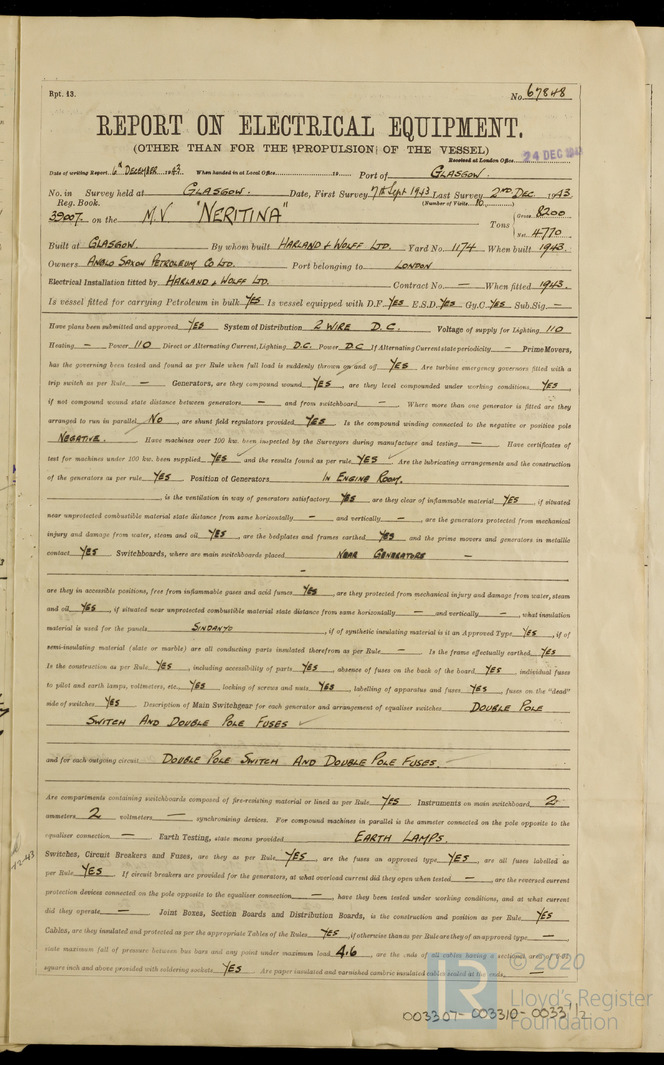 Rpt. 13.
No. 67848
REPORT ON ELECTRICAL EQUIPMENT.
(OTHER THAN FOR THE PROPULSION OF THE VESSEL)
Received at London Office 24 DEC
Date of writing Report 6th DECEMBER 1943. When handed in at Local Office 19 Port of GLASGOW.
No. in Survey held at GLASGOW. Date, First Survey 7th Sept 1943 Last Survey 2ND DEC 1943.
Reg. Book. (Number of Visits 10.)
39007. on the M.V "NERITINA" Tons Gross 8200
Net 4770
Built at GLASGOW. By whom built HARLAND & WOLFF LTD. Yard No. 1174 When built 1943.
Owners ANGLO SAXON PETROLEUM CO LTD. Port belonging to LONDON
Electrical Installation fitted by HARLAND & WOLFF LTD. Contract No. — When fitted 1943.
Is vessel fitted for carrying Petroleum in bulk YES Is vessel equipped with D.F. YES E.S.D. YES Gy.C. YES Sub.Sig. —
Have plans been submitted and approved YES System of Distribution 2 WIRE D.C. Voltage of supply for Lighting 110
Heating — Power 110 Direct or Alternating Current, Lighting D.C. Power D.C If Alternating Current state periodicity — Prime Movers,
has the governing been tested and found as per Rule when full load is suddenly thrown on and off YES Are turbine emergency governors fitted with a
trip switch as per Rule — Generators, are they compound wound YES, are they level compounded under working conditions YES,
if not compound wound state distance between generators — and from switchboard —. Where more than one generator is fitted are they
arranged to run in parallel NO, are shunt field regulators provided YES Is the compound winding connected to the negative or positive pole
NEGATIVE. Have machines over 100 kw. been inspected by the Surveyors during manufacture and testing — Have certificates of
test for machines under 100 kw. been supplied YES and the results found as per rule YES Are the lubricating arrangements and the construction
of the generators as per rule YES Position of Generators IN ENGINE ROOM.
, is the ventilation in way of generators satisfactory YES are they clear of inflammable material YES, if situated
near unprotected combustible material state distance from same horizontally — and vertically —, are the generators protected from mechanical
injury and damage from water, steam and oil YES, are the bedplates and frames earthed YES and the prime movers and generators in metallic
contact YES Switchboards, where are main switchboards placed NEAR GENERATORS —
—
are they in accessible positions, free from inflammable gases and acid fumes YES, are they protected from mechanical injury and damage from water, steam
and oil YES, if situated near unprotected combustible material state distance from same horizontally — and vertically —, what insulation
material is used for the panels SINDANYO, if of synthetic insulating material is it an Approved Type YES, if of
semi-insulating material (slate or marble) are all conducting parts insulated therefrom as per Rule — Is the frame effectually earthed YES
Is the construction as per Rule YES, including accessibility of parts YES, absence of fuses on the back of the board YES, individual fuses
to pilot and earth lamps, voltmeters, etc. YES locking of screws and nuts YES, labelling of apparatus and fuses YES, fuses on the "dead"
side of switches YES Description of Main Switchgear for each generator and arrangement of equaliser switches DOUBLE POLE
SWITCH AND DOUBLE POLE FUSES
and for each outgoing circuit DOUBLE POLE SWITCH AND DOUBLE POLE FUSES.
Are compartments containing switchboards composed of fire-resisting material or lined as per Rule YES Instruments on main switchboard 2
ammeters 2 voltmeters — synchronising devices. For compound machines in parallel is the ammeter connected on the pole opposite to the
equaliser connection — Earth Testing, state means provided EARTH LAMPS.
Switches, Circuit Breakers and Fuses, are they as per Rule YES, are the fuses an approved type YES, are all fuses labelled as
per Rule YES If circuit breakers are provided for the generators, at what overload current did they open when tested —, are the reversed current
protection devices connected on the pole opposite to the equaliser connection —, have they been tested under working conditions, and at what current
did they operate — Joint Boxes, Section Boards and Distribution Boards, is the construction and position as per Rule YES
Cables, are they insulated and protected as per the appropriate Tables of the Rules YES, if otherwise than as per Rule are they of an approved type —
state maximum fall of pressure between bus bars and any point under maximum load 4.6, are the ends of all cables having a sectional area of
square inch and above provided with soldering sockets YES Are paper insulated and varnished cambric insulated cables sealed at the ends —
© 2020
LR
Lloyd's Register
Foundation
003307-003310-0033 1/2